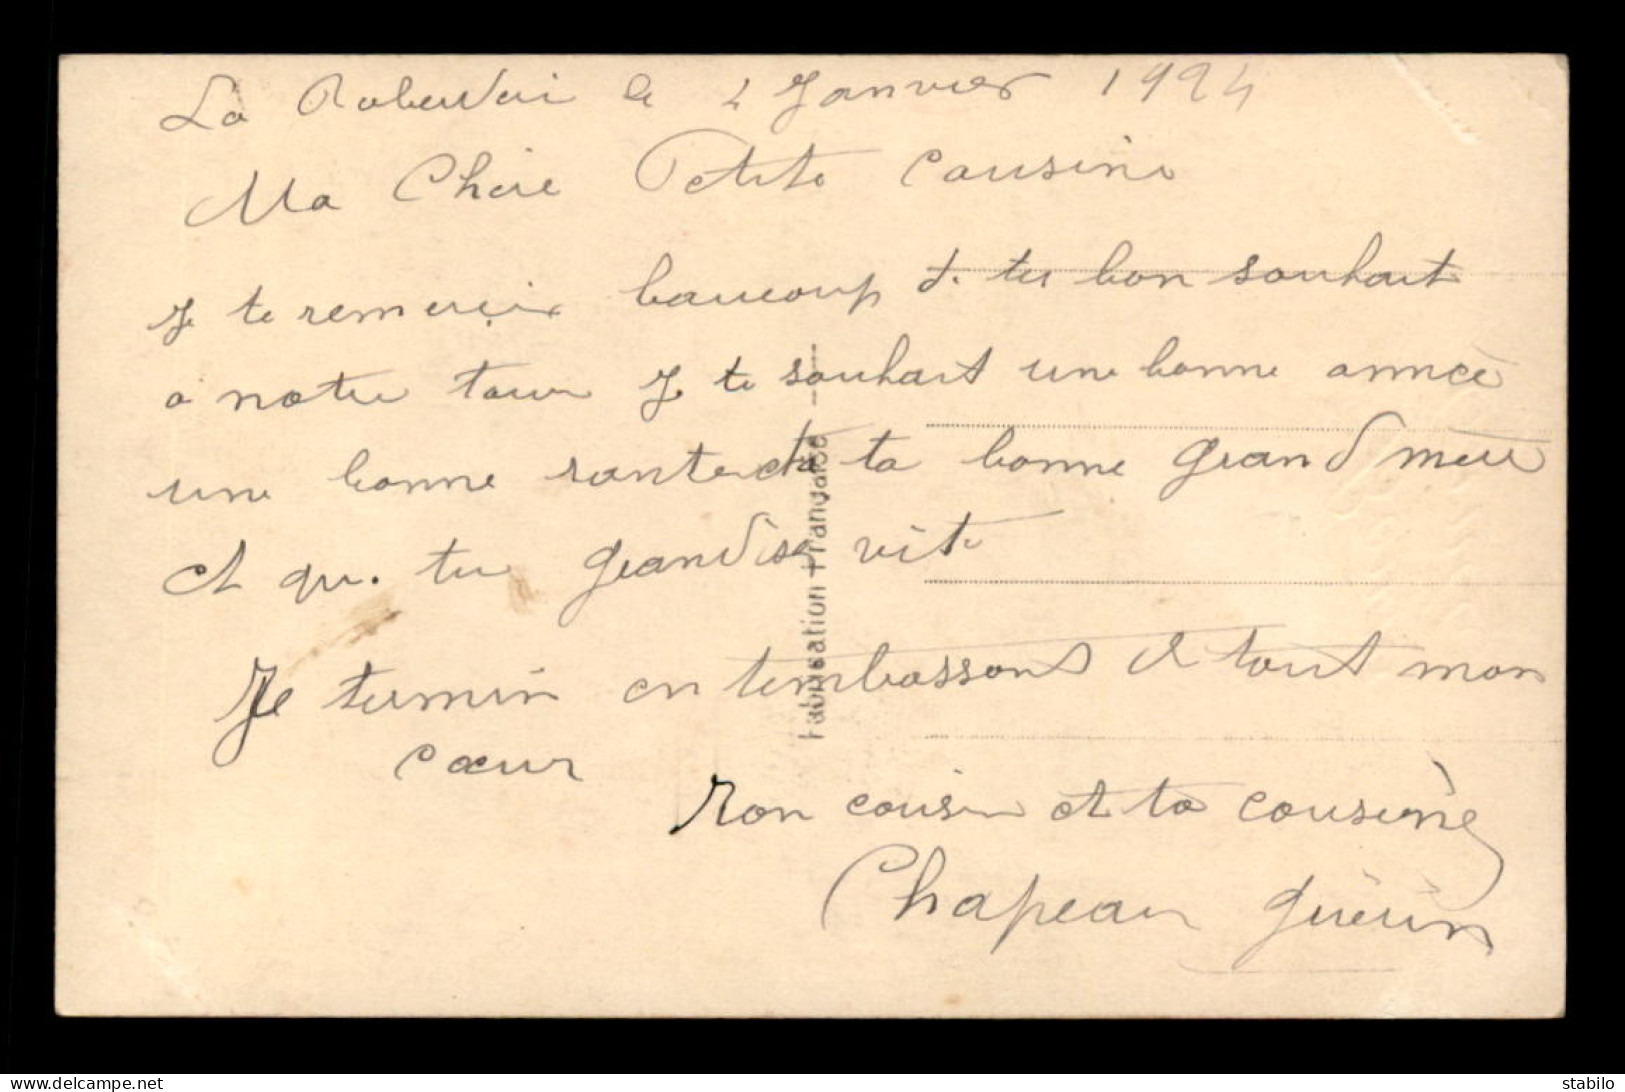 La le 2 Janvier 1924
Ma Chère Petite Cousine
Je te remercie beaucoup de tes bon souhait
a notre tour Je te souhait une bonne année
une bonne sante et a ta bonne grand mère
et que tu grandise vite
Je termin en t'embassant de tout mon
cœur
Ton cousin et ta cousine
Chapeau Guérin
Fabrication Française
delcampe.net
stabilo